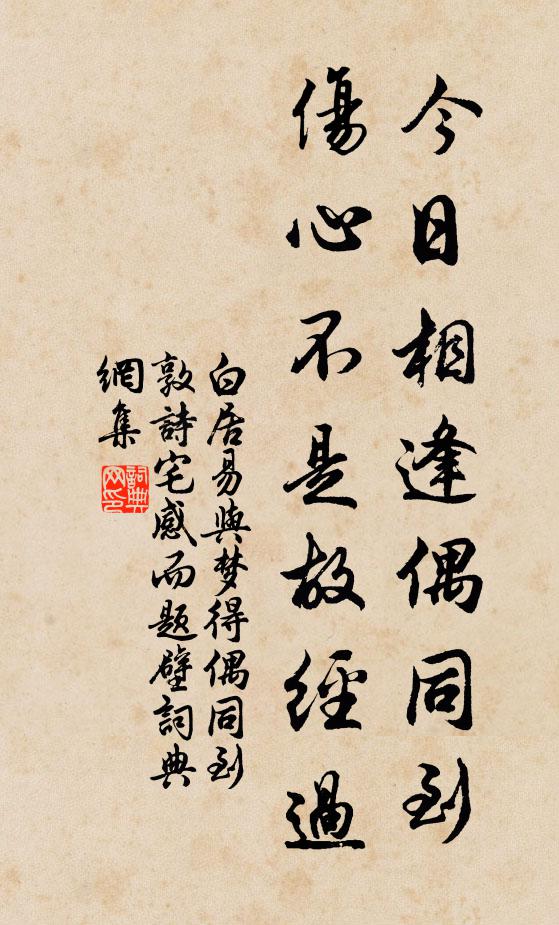 今日相逢偶同到
傷心不是故經過
白居易與梦得偶同到
敦詩宅感而题壁詞典
網集
詞典
网印